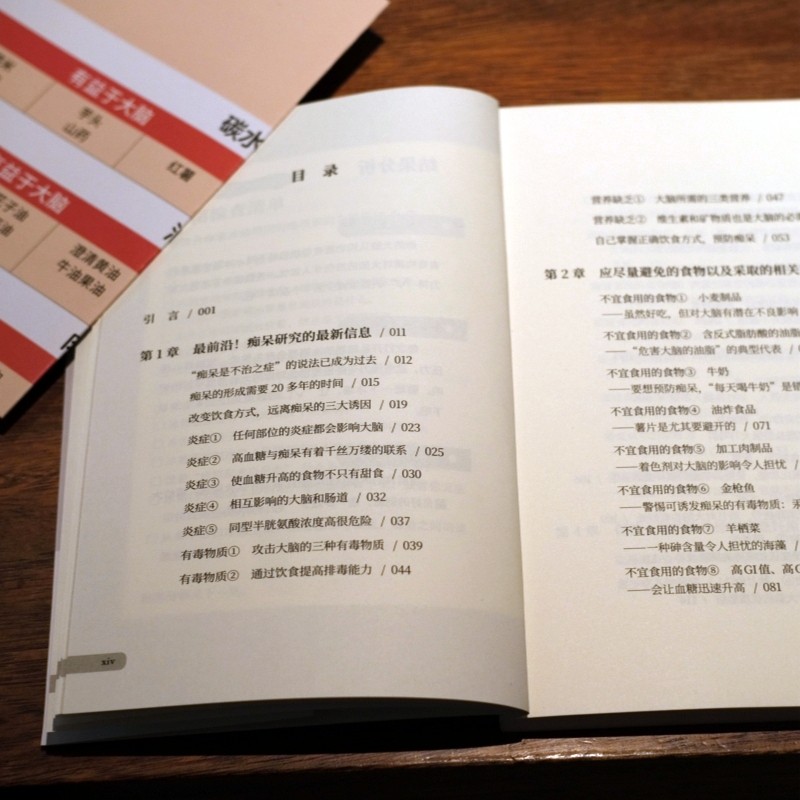 有益于大脑
芋头
山药
红薯
碳水
有益于大脑
澄清黄油
牛油果油
目 录
引 言 / 001
第 1 章 最前沿！痴呆研究的最新信息 / 011
“痴呆是不治之症”的说法已成为过去 / 012
痴呆的形成需要 20 多年的时间 / 015
改变饮食方式，远离痴呆的三大诱因 / 019
炎症① 任何部位的炎症都会影响大脑 / 023
炎症② 高血糖与痴呆有着千丝万缕的联系 / 025
炎症③ 使血糖升高的食物不只有甜食 / 030
炎症④ 相互影响的大脑和肠道 / 032
炎症⑤ 同型半胱氨酸浓度高很危险 / 037
有毒物质① 攻击大脑的三种有毒物质 / 039
有毒物质② 通过饮食提高排毒能力 / 044
xiv
营养缺乏① 大脑所需的三类营养 / 047
营养缺乏② 维生素和矿物质也是大脑的必
自己掌握正确饮食方式，预防痴呆 / 053
第 2 章 应尽量避免的食物以及采取的相关
不宜食用的食物① 小麦制品
——虽然好吃，但对大脑有潜在不良影响
不宜食用的食物② 含反式脂肪酸的油脂
——“危害大脑的油脂”的典型代表 /
不宜食用的食物③ 牛奶
——要想预防痴呆，“每天喝牛奶”是错
不宜食用的食物④ 油炸食品
——薯片是尤其要避开的 / 071
不宜食用的食物⑤ 加工肉制品
——着色剂对大脑的影响令人担忧 /
不宜食用的食物⑥ 金枪鱼
——警惕可诱发痴呆的有毒物质：汞
不宜食用的食物⑦ 羊栖菜
——一种砷含量令人担忧的海藻 /
不宜食用的食物⑧ 高GI值、高G
——会让血糖迅速升高 / 081